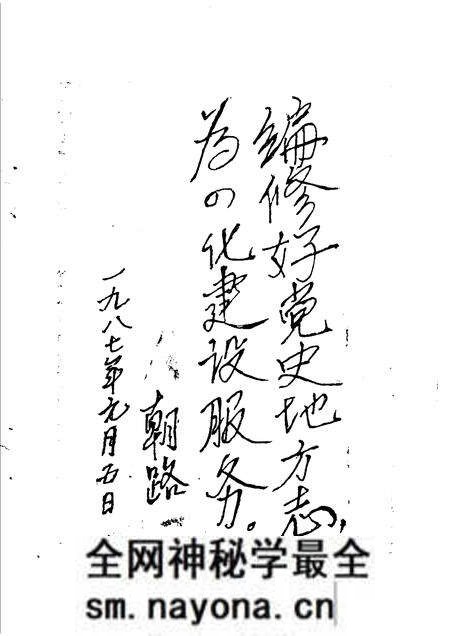 编修好党史地方志,
为四化建设服务。
朝路
一九八七年元月五日
全网神秘学最全
sm.nayona.cn